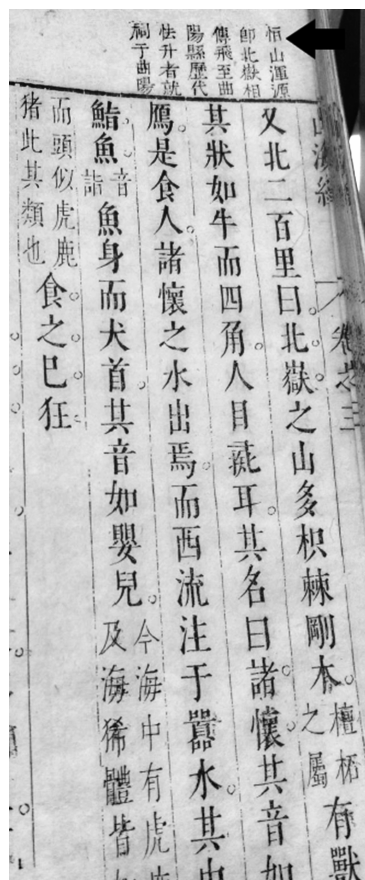 恒山渾源
即北嶽相
傳飛至曲
陽縣歷代
怯升者就
祠于曲陽
山海經 卷之三
又北二百里曰北嶽之山多枳棘剛木檀柘之屬有獸
其狀如牛而四角人目彘耳其名曰諸懷其音如
鴈是食人諸懷之水出焉而西流注于嚻水其中
鮨魚音詣魚身而犬首其音如嬰兒今海中有虎鹿及海狶體皆如
而頭似虎鹿猪此其類也食之已狂